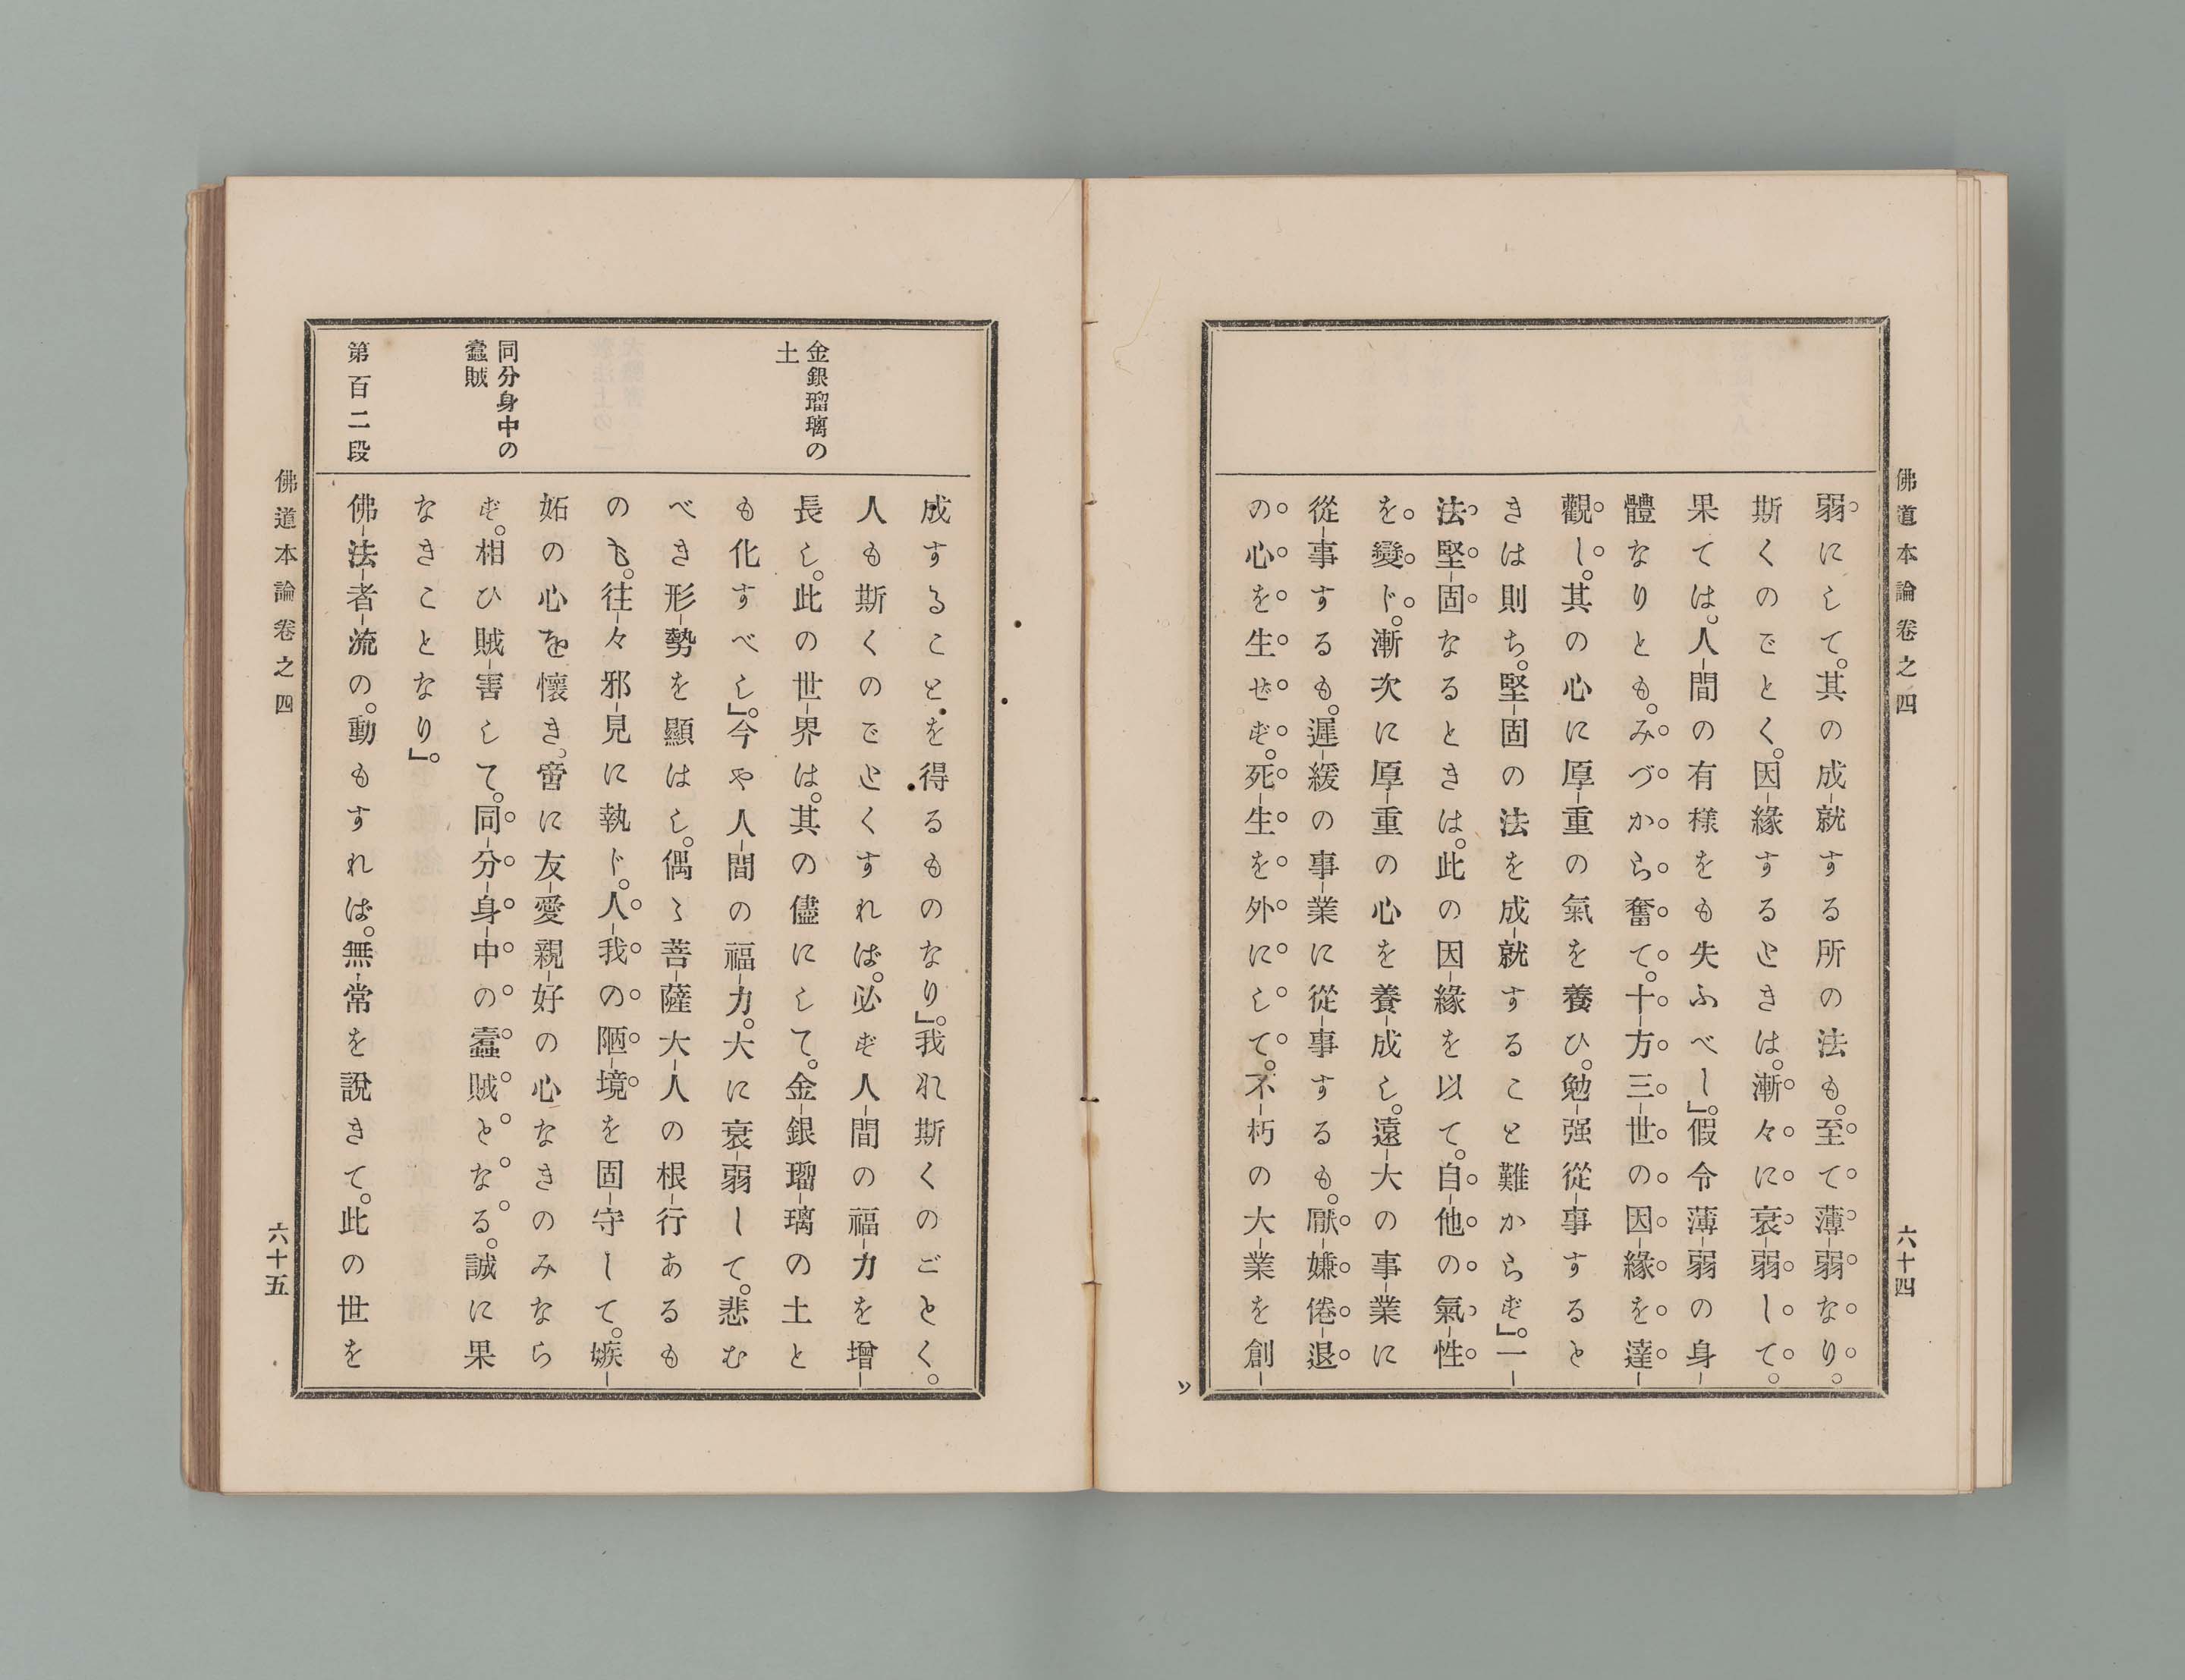 佛道本論卷之四
六十四
弱にして。其の成就する所の法も。至て薄弱なり。
斯くのごとく。因緣するときは。漸々に衰弱して。
果ては。人間の有樣をも失ふべし』。假令薄弱の身
體なりとも。みづから奮て。十方三世の因緣を達
觀し。其の心に厚重の氣を養ひ。勉强從事すると
きは則ち。堅固の法を成就すること難からず』。一
法堅固なるときは。此の因緣を以て。自他の氣性
を變じ。漸次に厚重の心を養成し。遠大の事業に
從事するも。遲緩の事業に從事するも。厭嫌倦退
の心を生せず。死生を外にして。不朽の大業を創
ツ
成することを得るものなり』。我れ斯くのごとく。
人も斯くのごとくすれば。必ず人間の福力を增
長し。此の世界は。其の儘にして。金銀瑠璃の土と
も化すべし』。今や人間の福力。大に衰弱して。悲む
べき形勢を顯はし。偶〻菩薩大人の根行あるも
のも。往々邪見に執じ。人我の陋境を固守して。嫉
妬の心を懷き。啻に友愛親好の心なきのみなら
ず。相ひ賊害して。同分身中の蠧賊となる。誠に果
なきことなり』。
佛法者流の。動もすれば。無常を說きて。此の世を
金銀瑠璃の
土
同分身中の
蠧賊
第百二段
佛道本論卷之四
六十五